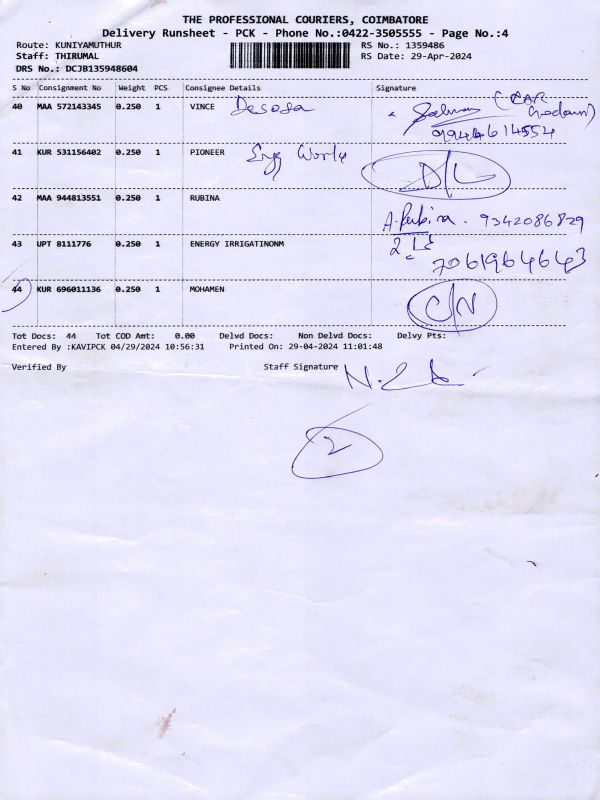 THE PROFESSIONAL COURIERS, COIMBATORE
Delivery Runsheet - PCK - Phone No.:0422-3505555 - Page No.:4
Route: KUNIYAMUTHUR RS No.: 1359486
Staff: THIRUMAL RS Date: 29-Apr-2024
DRS No.: DCJB135948604
S No Consignment No Weight PCS Consignee Details Signature
40 MAA 572143345 0.250 1 VINCE Desosa (CAR Godown)
9944614554
41 KUR 531156402 0.250 1 PIONEER Engg Works D/L
42 MAA 944813551 0.250 1 RUBINA A. Rubina. 9342086829
43 UPT 8111776 0.250 1 ENERGY IRRIGATINONM 7061964643
44 KUR 696011136 0.250 1 MOHAMEN C/N
Tot Docs: 44 Tot COD Amt: 0.00 Delvd Docs: Non Delvd Docs: Delvy Pts:
Entered By :KAVIPCK 04/29/2024 10:56:31 Printed On: 29-04-2024 11:01:48
Verified By Staff Signature
2